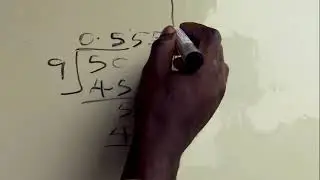 0.555
9 50
4.5
5
4